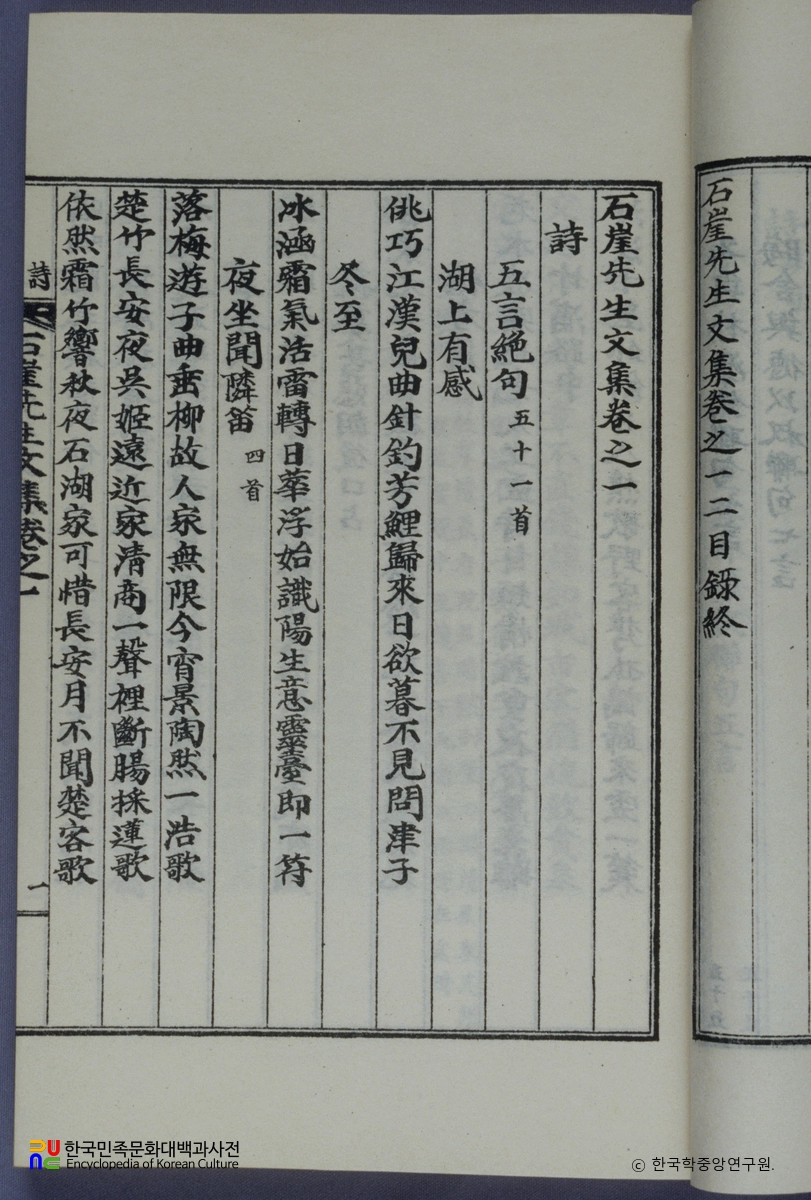 石崖先生文集卷之一二目錄終
石崖先生文集卷之一
詩
五言絕句 五十一首
湖上有感
佻巧江漢兒曲針釣芳鯉歸來日欲暮不見問津子
冬至
冰涵霜氣活雷轉日華浮始識陽生意靈臺即一符
夜坐聞隣笛 四首
落梅遊子曲垂柳故人家無限今宵景陶然一浩歌
楚竹長安夜吳姬遠近家淸商一聲裡斷腸採蓮歌
依然霜竹響秋夜石湖家可惜長安月不聞楚客歌
詩 石崖先生文集卷之一 一
한국민족문화대백과사전
Encyclopedia of Korean Culture
ⓒ 한국학중앙연구원.